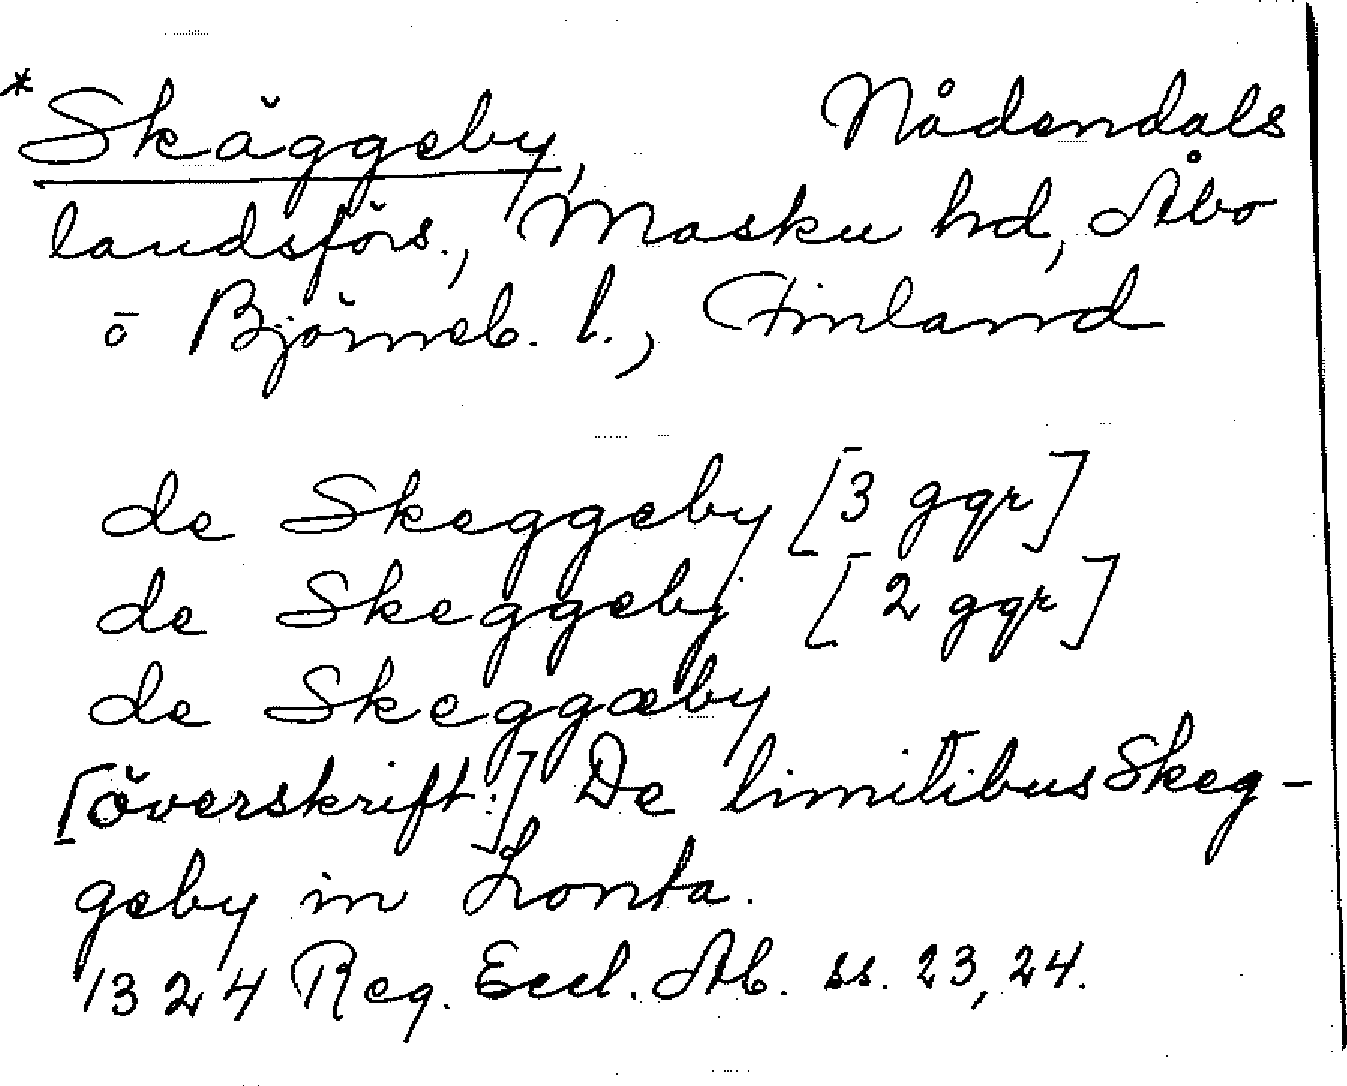 * Skäggeby, Nådendals
landsförs., Masku hd, Åbo
o Björneb. l., Finland
de Skeggeby [3 ggr]
de Skeggebÿ [2 ggr]
de Skeggæby
[överskrift:] De limitibus Skeg-
geby in Lonta.
1324 Reg. Eccl. Ab. ss. 23, 24.